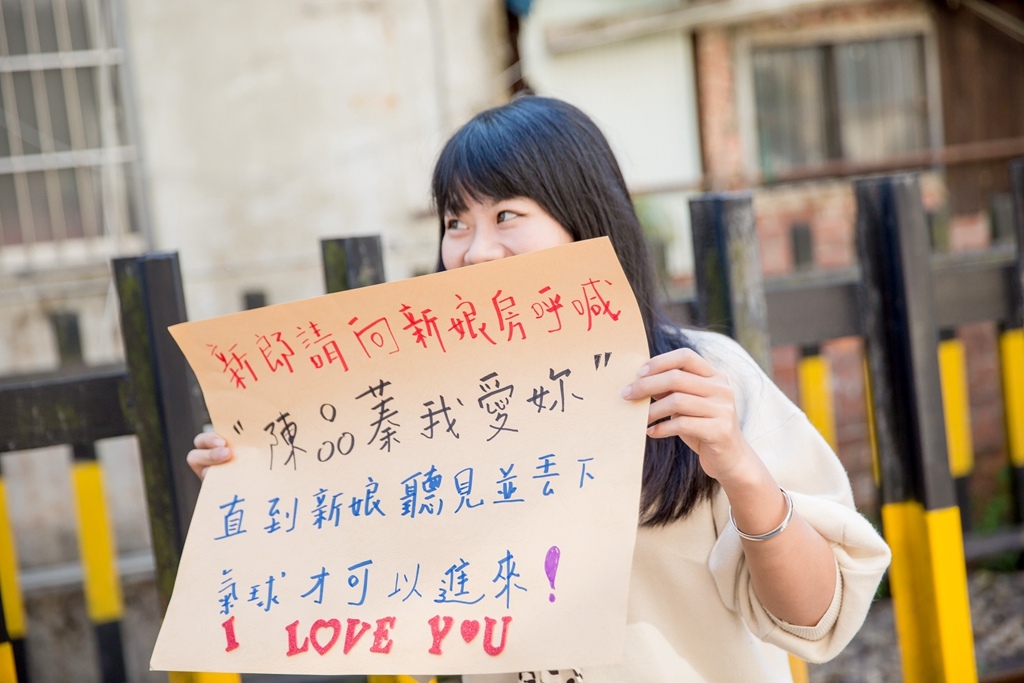 新郎請向新娘房呼喊
"陳品蓁我愛妳"
直到新娘聽見並丟下
氣球才可以進來!
I LOVE Y♥U